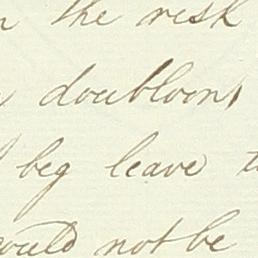 the risk
doubloons
beg leave
would not be